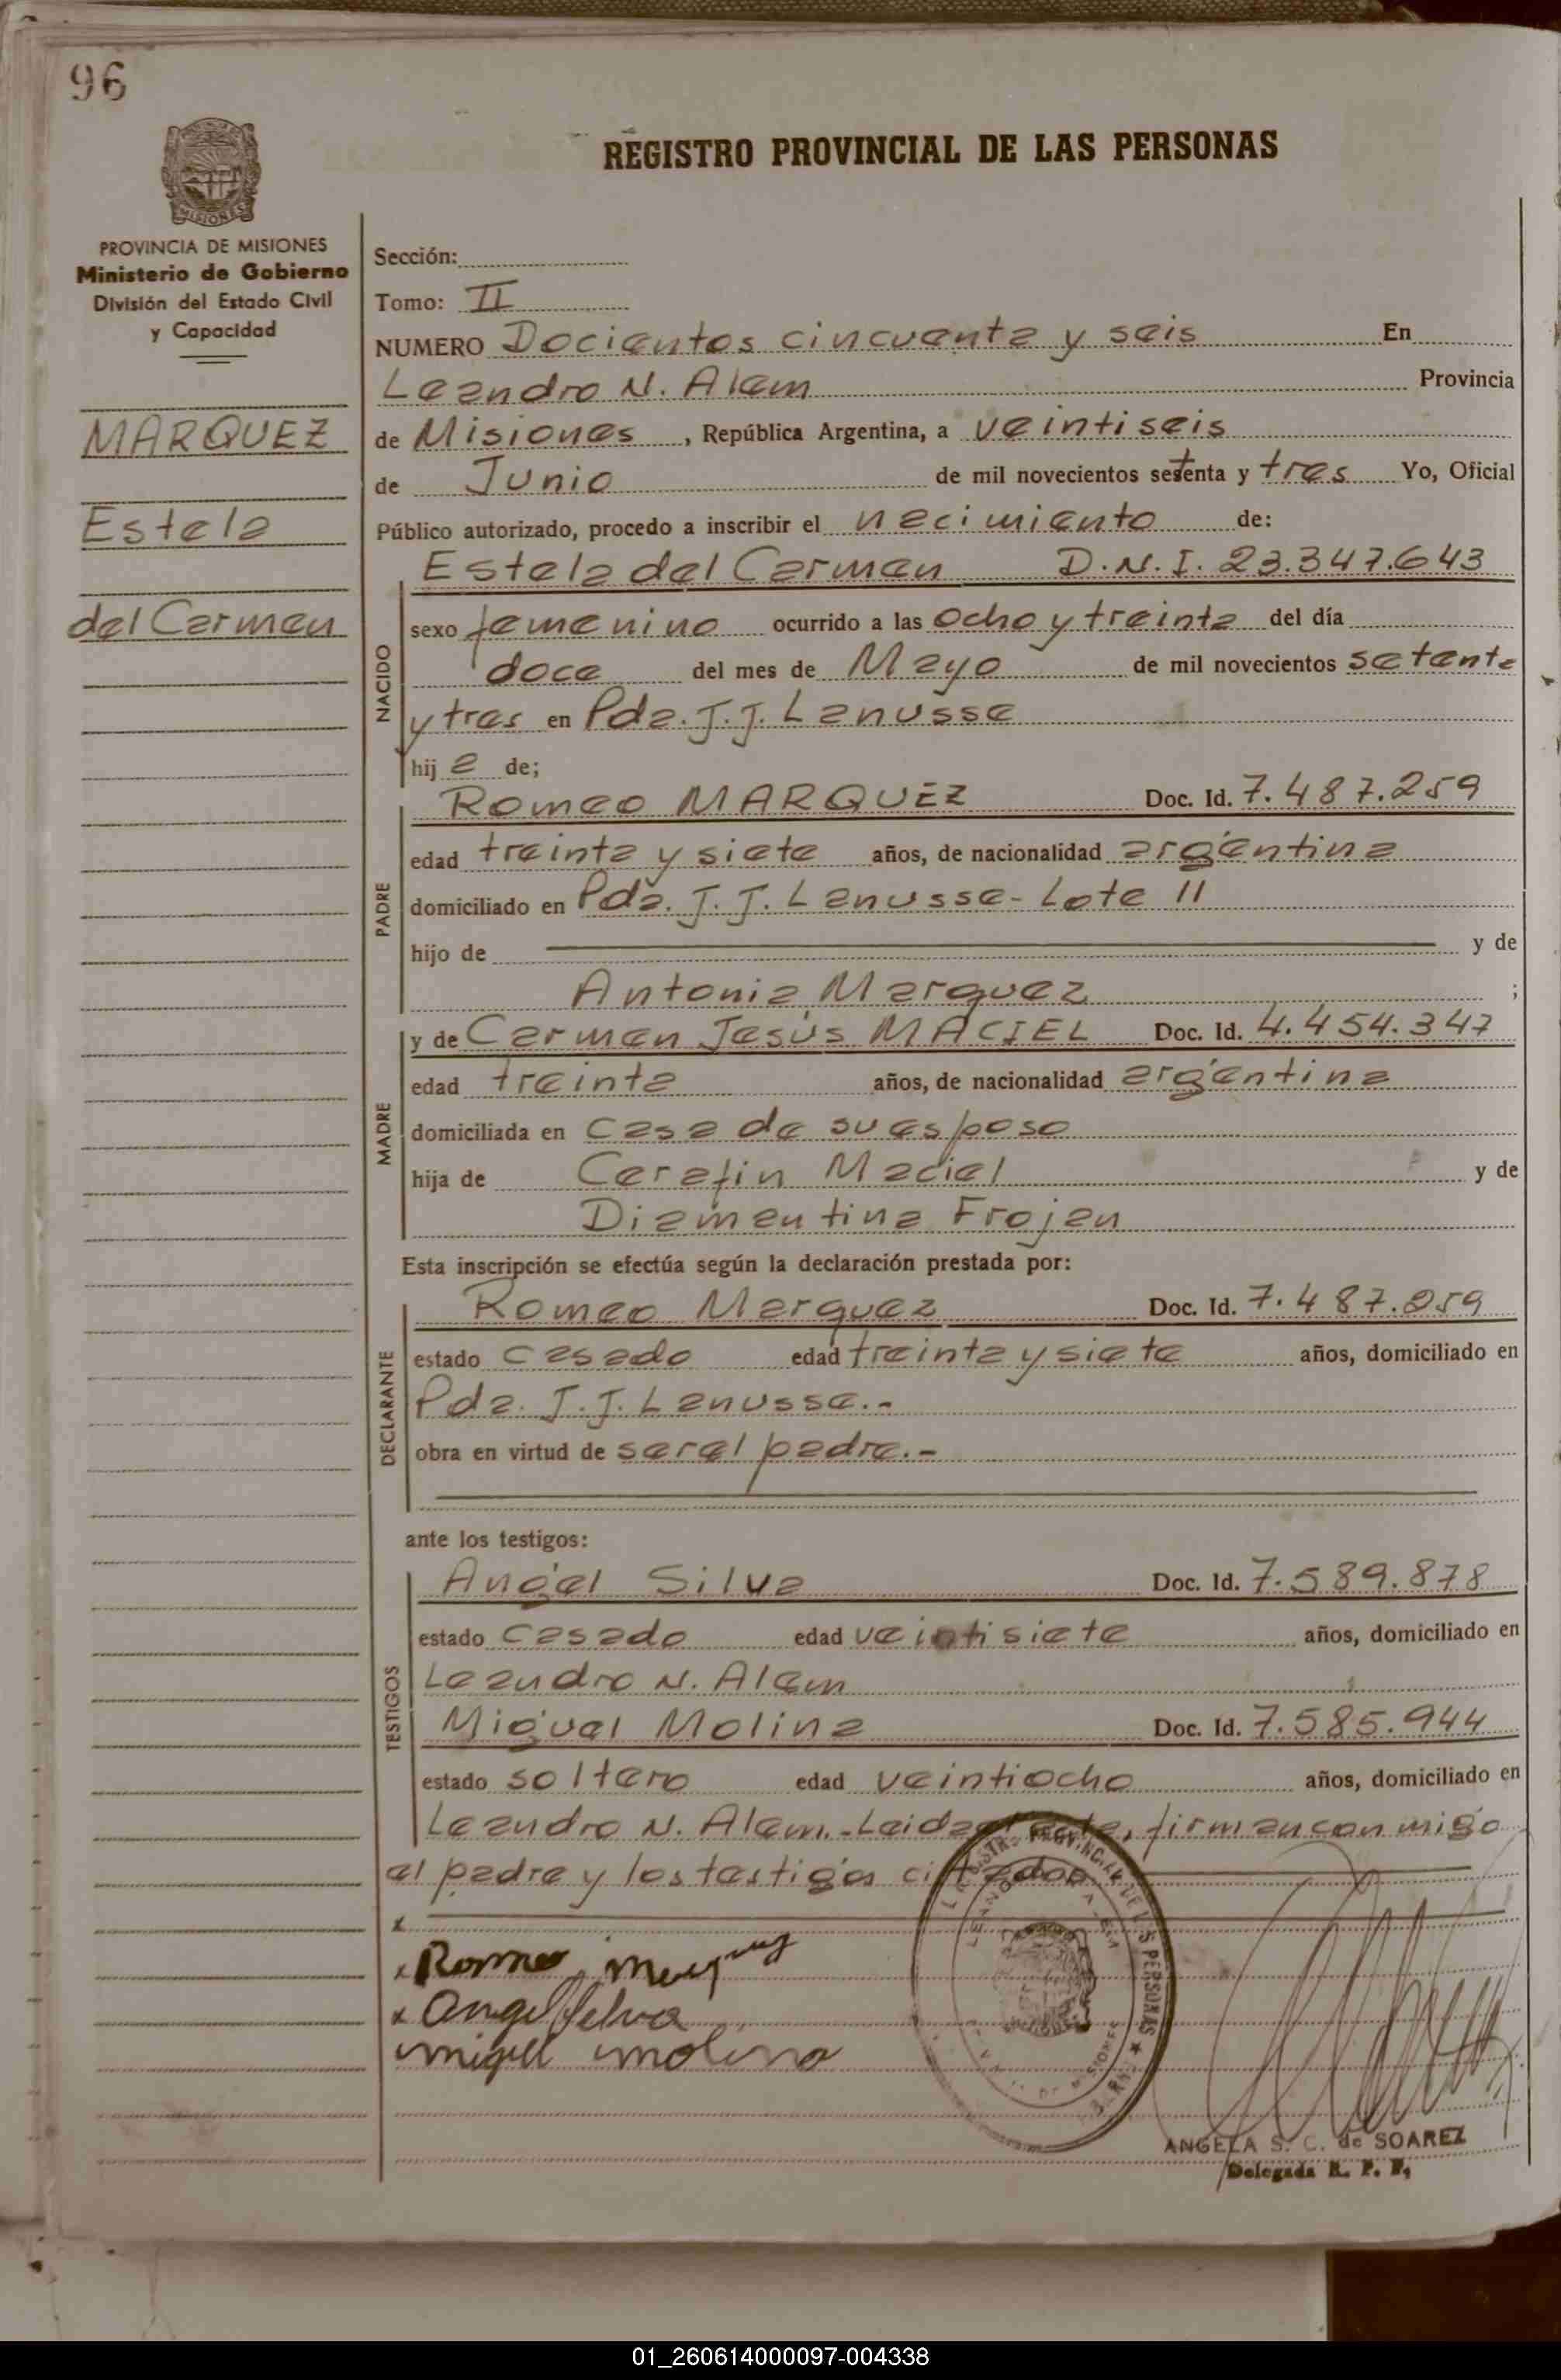 96
REGISTRO PROVINCIAL DE LAS PERSONAS
MISIONES
PROVINCIA DE MISIONES
Ministerio de Gobierno
División del Estado Civil
y Capacidad
MARQUEZ
Estela
del Carmen
Sección:
Tomo: II
NUMERO Docientos cincuenta y seis En
Leandro N. Alem Provincia
de Misiones, República Argentina, a veintiseis
de Junio de mil novecientos setenta y tres Yo, Oficial
Público autorizado, procedo a inscribir el nacimiento de:
Estela del Carmen D.N.I. 23.347.643
NACIDO
sexo femenino ocurrido a las ocho y treinta del día
doce del mes de Mayo de mil novecientos setenta
y tres en Pda. J.J. Lanusse
hija de;
Romeo MARQUEZ Doc. Id. 7.487.259
PADRE
edad treinta y siete años, de nacionalidad argentina
domiciliado en Pda. J. J. Lanusse - Lote 11
hijo de y de
Antonia Marquez ;
y de Carmen Jesús MACIEL Doc. Id. 4.454.347
MADRE
edad treinta años, de nacionalidad argentina
domiciliada en casa de su esposo
hija de Cerafin Maciel y de
Diamentina Frojan
Esta inscripción se efectúa según la declaración prestada por:
Romeo Marquez Doc. Id. 7.487.259
DECLARANTE
estado casado edad treinta y siete años, domiciliado en
Pda. J.J. Lanusse.-
obra en virtud de ser el padre.-
ante los testigos:
Angel Silva Doc. Id. 7.589.878
TESTIGOS
estado casado edad veintisiete años, domiciliado en
Leandro N. Alem
Miguel Molina Doc. Id. 7.585.944
estado soltero edad veintiocho años, domiciliado en
Leandro N. Alem.- Leida acta, firman conmigo
el padre y los testigos citados
x
x Romeo
x Angel Selva
miguel molina
PROVINCIAL DE LAS PERSONAS
ANGELA S. C. de SOAREZ
Delegada R. P. P.
01_260614000097-004338